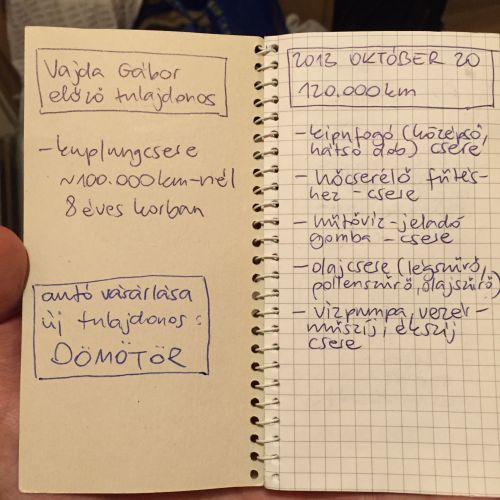 Vajda Gábor
előző tulajdonos
- kuplungcsere
~100.000km-nél
8 éves korban
autó vásárlása
új tulajdonos:
DÖMÖTÖR
2013 OKTÓBER 20
120.000km
- kipufogó (középső,
hátsó dob) csere
- hőcserélő fűtés-
hez - csere
- hűtővíz-jeladó
gomba - csere
- olajcsere (légszűrő,
pollenszűrő, olajszűrő)
- vízpumpa, vezér-
műszíj, ékszíj
csere